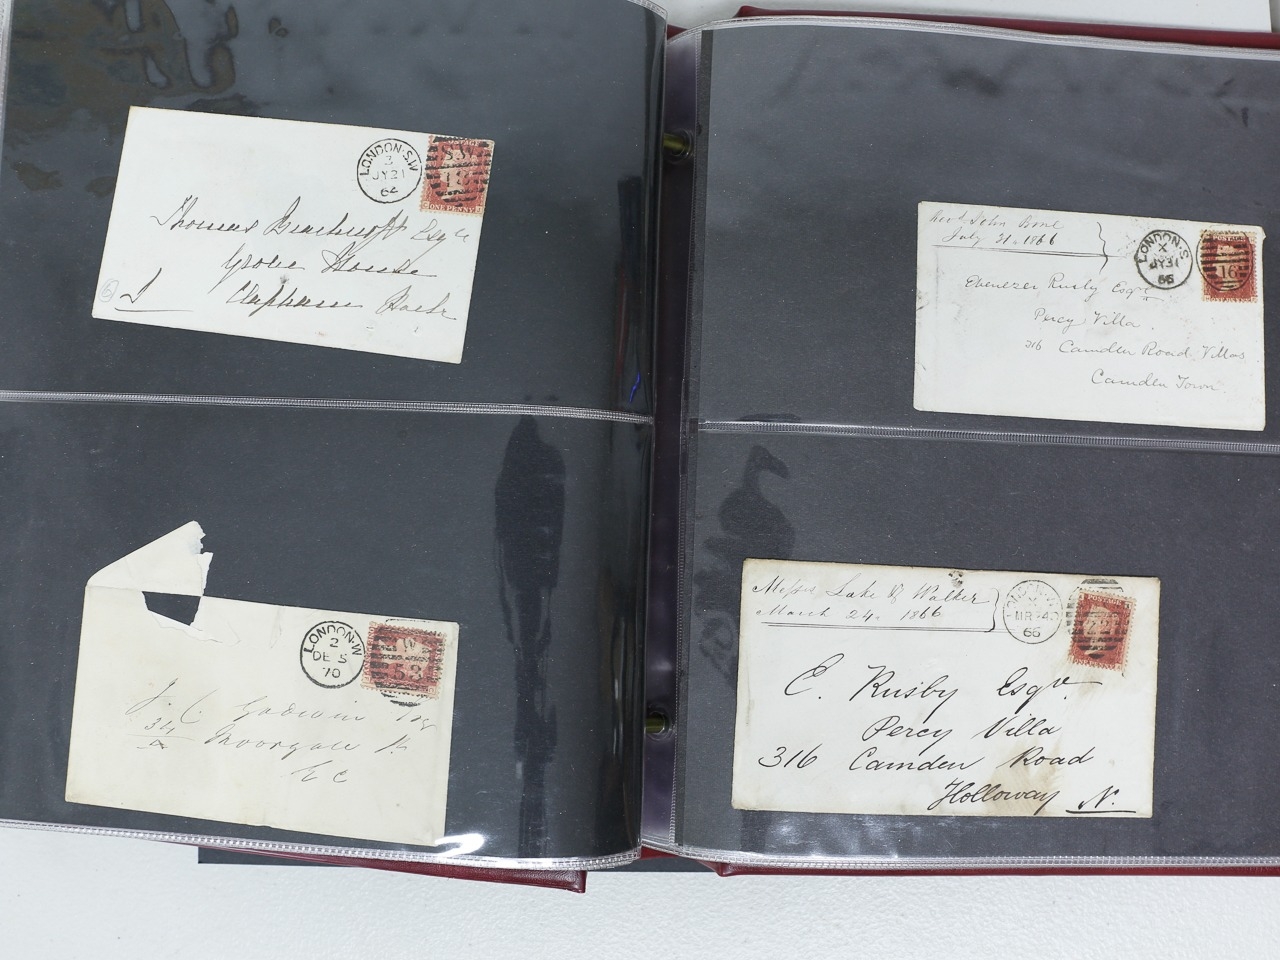 LONDON·S.W
3
JY21
64
S.W
18
ONE PENNY
Thomas Esqre
Grove House
Clapham
LONDON·W
2
DE 5
70
W
53
J. C. Godwin Esq
34
Moorgate St
E C
Revd John Bone
July 31. 1866
LONDON·S
X
JY31
66
POSTAGE
16
Ebenezer Rusby Esqre
Percy Villa.
316 Camden Road Villas
Camden Town
Messrs Lake & Walker
March 24. 1866
MR 24
66
POSTAGE
E. Rusby Esqre
Percy Villa
316 Camden Road
Holloway N.